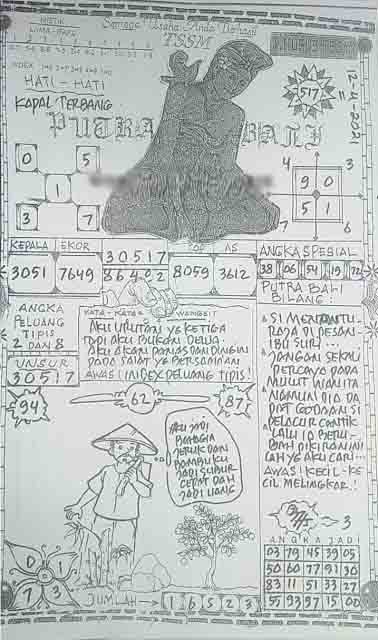 Semoga Usaha Anda Berhasil
TSSM
MISTIK
LIMA-RAPA
INDEX
12-4-2021
HATI - HATI
KAPAL TERBANG
517
PUTRA BALI
0 5
1
3 7
4 3
9 0
5 1
7 6
KEPALA EKOR
30517
AS
ANGKA SPESIAL
3051 7649
86402
8059 3612
38 06 54 19 72
PUTRA BALI
BILANG!
ANGKA
PELUANG
TIPIS
2 DAN 8
UNSUR
30517
94
KATA-KATA WANGSIT
AKU URUTAN YG KETIGA
TAPI AKU BUKAN DEWA
AKU AKAN PANAS DAN DINGIN
PADA SAAT YG BERSAMAAN
AWAS! INDEX PELUANG TIPIS!
62
87
SI MENANTU-
RAJA DI PESAN-
IBU SURI...
JANGAN SEKALI
PERCAYA PADA
MULUT WANITA
NAMUN DIA DA
PAT GODAAN SI
PELACUR CANTIK
LALU IA BERU-
BAH PIKIRAN INI
LAH YG AKU CARI...
AWAS! KECIL-KE
CIL MELINGKAR!
AKU JADI
BAHAGIA
JERUK DAN
BAMBUKU
JADI SUBUR
CEPAT DAH
JADI UANG
3
0 1
7 3
JUMLAH
1 6 5 2 3
ANGKA JADI
03 79 45 39 05
50 60 77 91 30
83 11 51 33 27
55 93 97 15 00